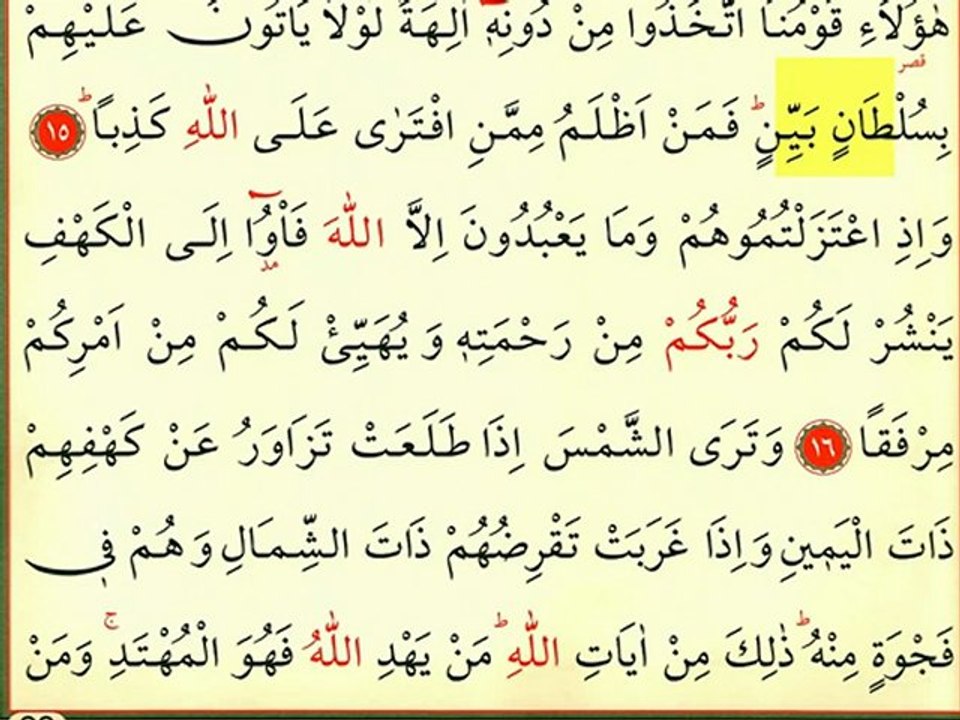 هٰٓؤُلَٓاءِ قَوْمُنَا اتَّخَذُوا مِنْ دُونِه۪ٓ اٰلِهَةً لَوْلَا يَأْتُونَ عَلَيْهِمْ
بِسُلْطَانٍ بَيِّنٍۜ فَمَنْ اَظْلَمُ مِمَّنِ افْتَرٰى عَلَى اللّٰهِ كَذِباًۜ ﴿١٥﴾
وَاِذِ اعْتَزَلْتُمُوهُمْ وَمَا يَعْبُدُونَ اِلَّا اللّٰهَ فَأْوُ۫ٓا اِلَى الْكَهْفِ
يَنْشُرْ لَكُمْ رَبُّكُمْ مِنْ رَحْمَتِه۪ وَيُهَيِّئْ لَكُمْ مِنْ اَمْرِكُمْ
مِرْفَقاً ﴿١٦﴾ وَتَرَى الشَّمْسَ اِذَا طَلَعَتْ تَزَاوَرُ عَنْ كَهْفِهِمْ
ذَاتَ الْيَم۪ينِ وَاِذَا غَرَبَتْ تَقْرِضُهُمْ ذَاتَ الشِّمَالِ وَهُمْ ف۪ي
فَجْوَةٍ مِنْهُۜ ذٰلِكَ مِنْ اٰيَاتِ اللّٰهِۜ مَنْ يَهْدِ اللّٰهُ فَهُوَ الْمُهْتَدِۚ وَمَنْ